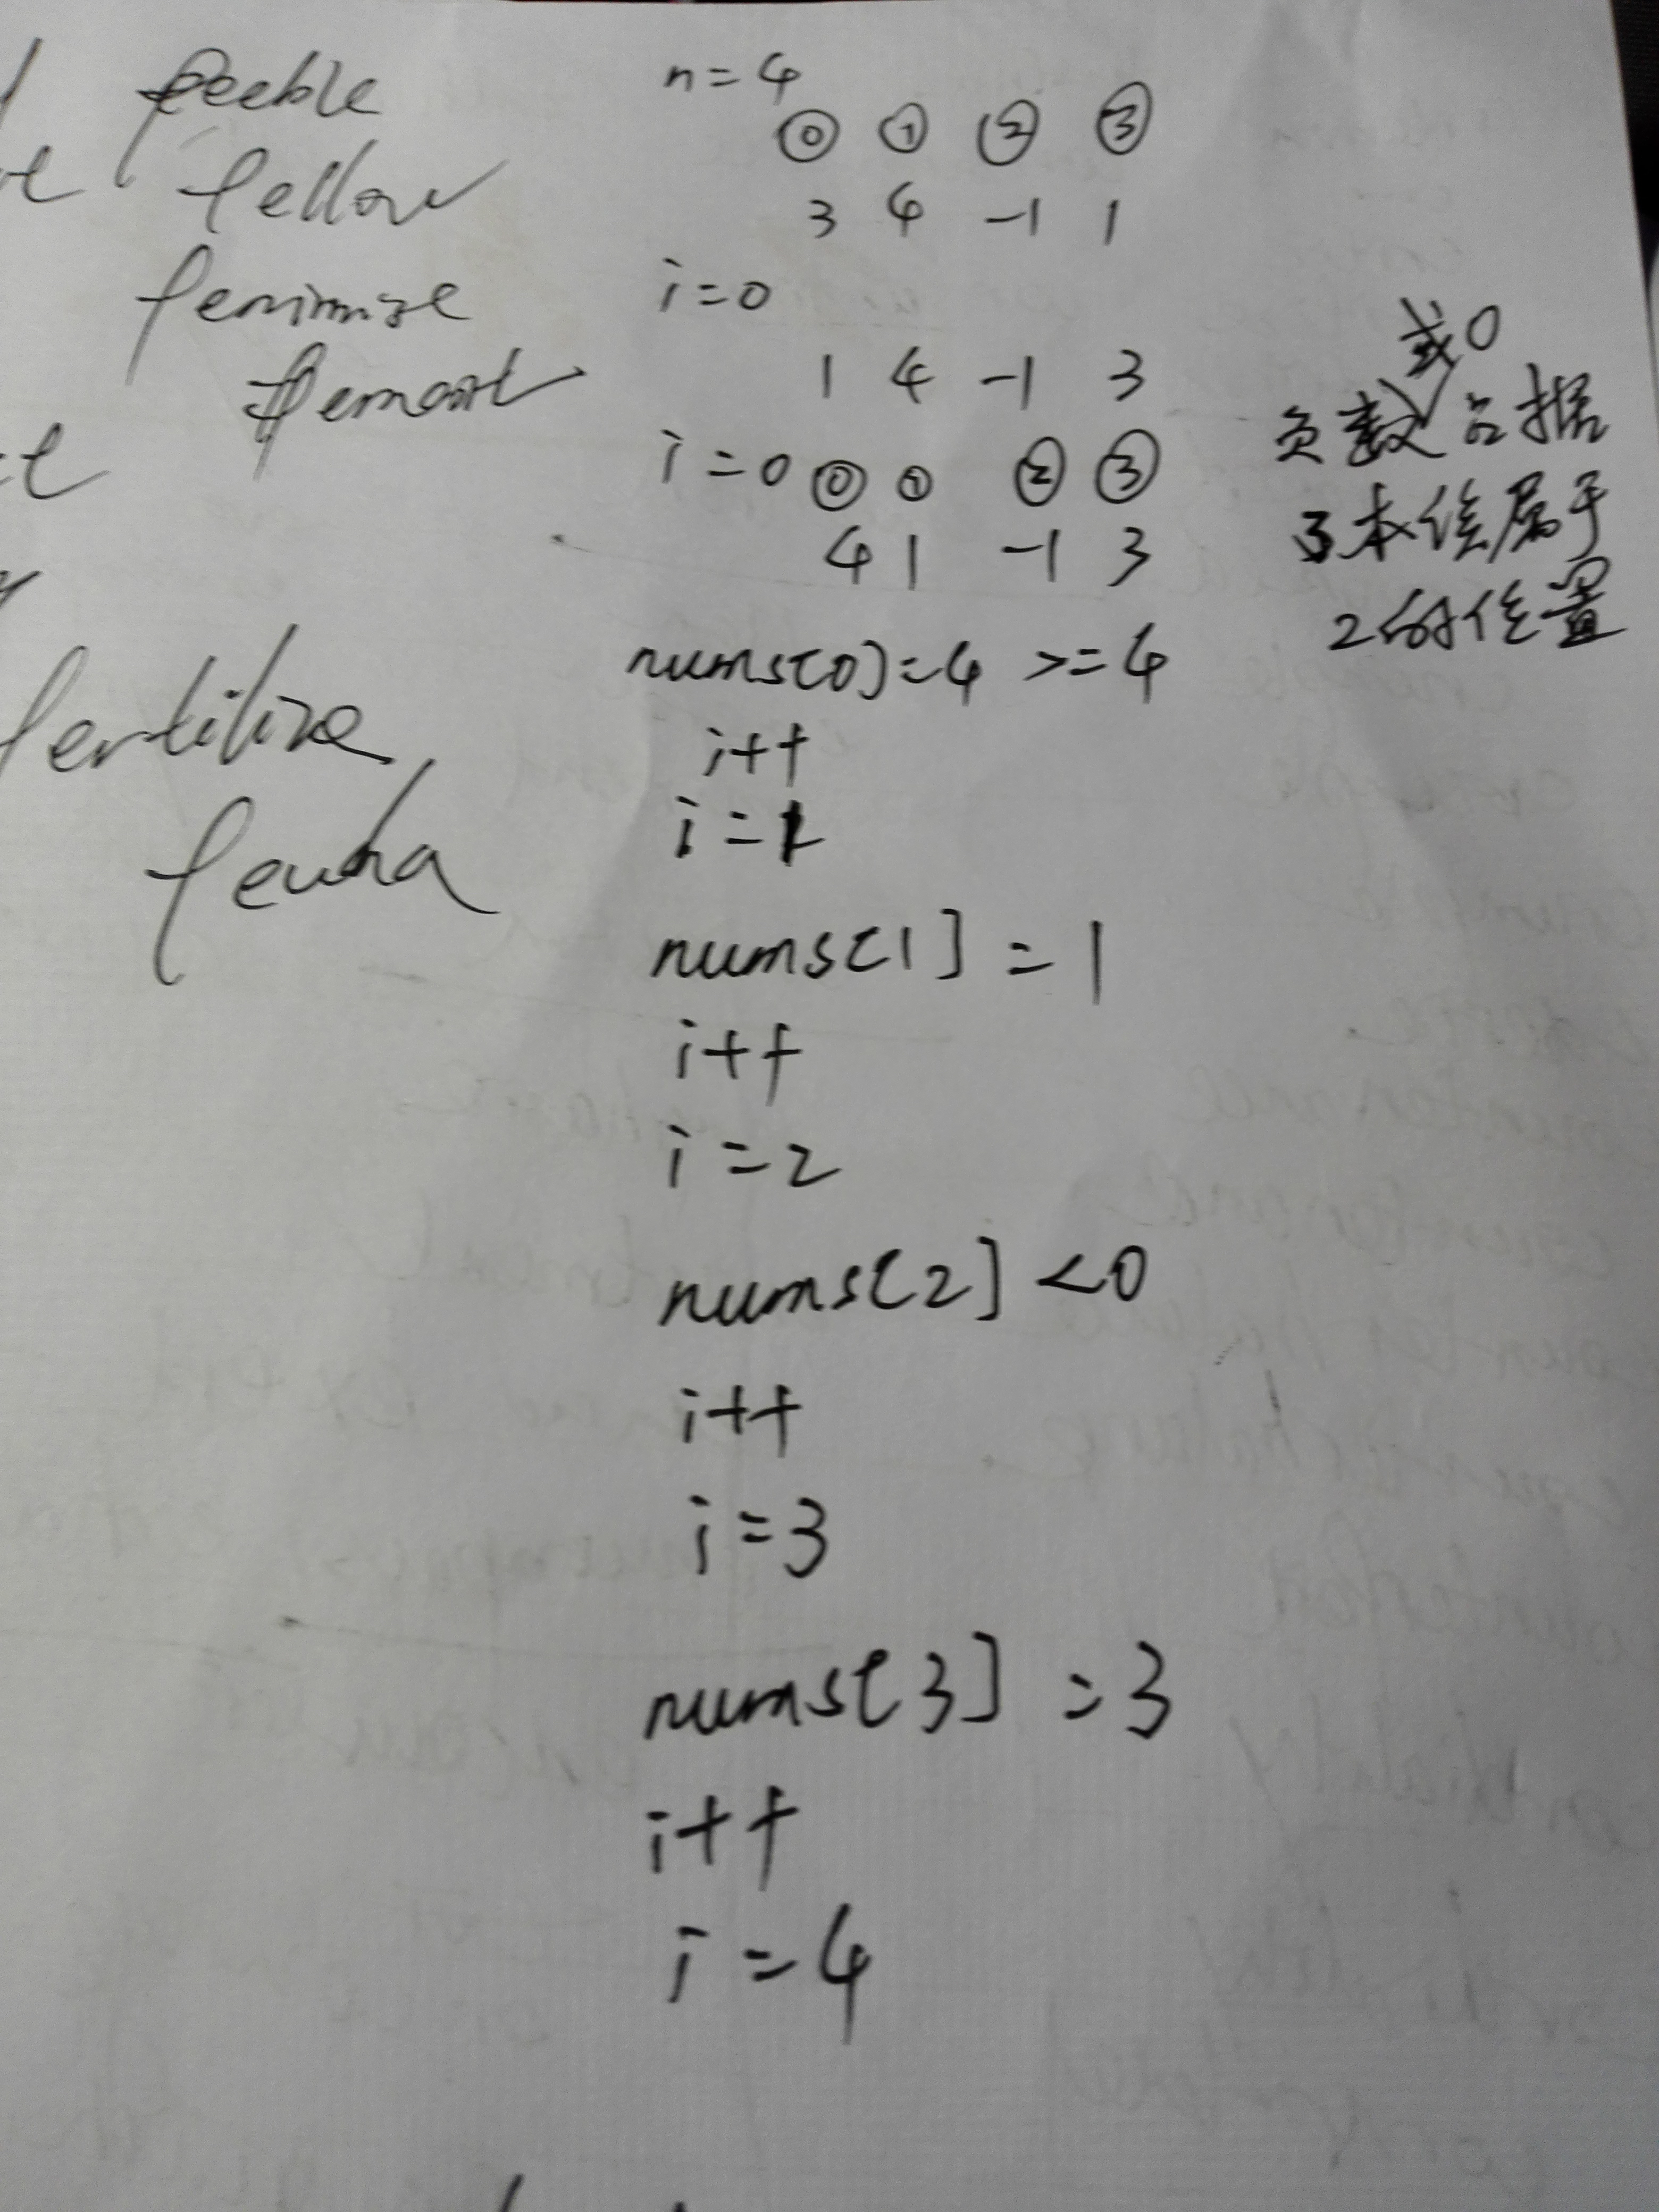 feeble
fellow
feminize
fertilize
n=4
⓪ ① ② ③
3 4 -1 1
i=0
1 4 -1 3
i=0 ⓪ ① ② ③
4 1 -1 3
nums[0]=4 >=4
i++
i=1
nums[1] = 1
i++
i=2
nums[2] <0
i++
i=3
nums[3] =3
i++
i=4
或0
负数占据
了本住属于
2的住置